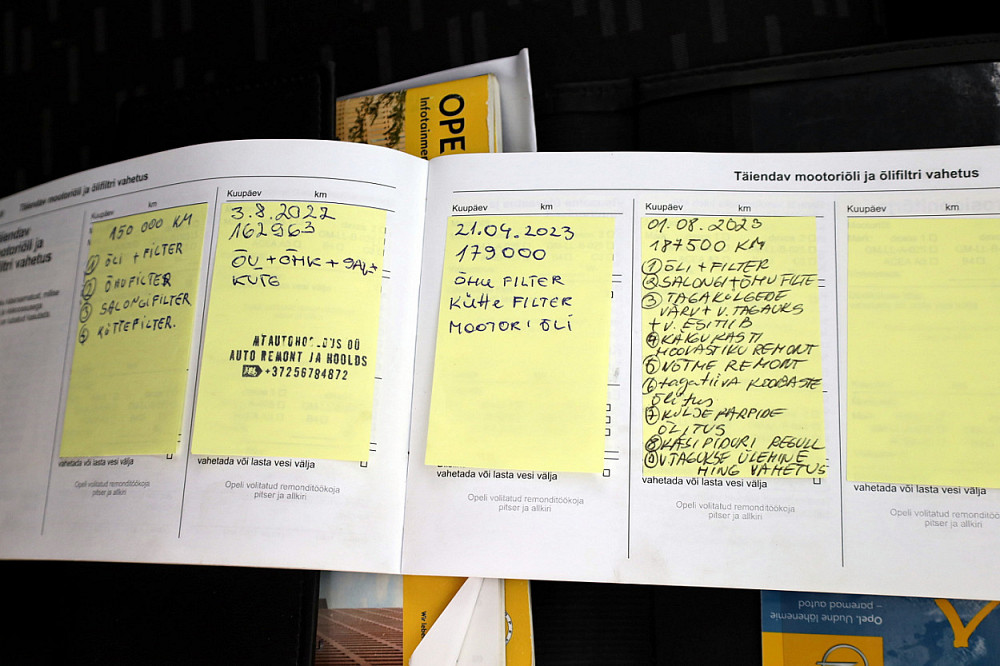 OPE
Infotainme
Täiendav mootoriõli ja õlifiltri vahetus
Täiendav mootoriõli ja õlifiltri vahetus
km
150 000 KM
① ÕLI + FILTER
② ÕHUFILTER
③ SALONGIFILTER
④ KÜTTEFILTER.
Kuupäev km
3.8.2022
162963
KÜTE
MTAUTOHOOLDUS OÜ
AUTO REMONT JA HOOLDS
+37256784872
vahetada või lasta vesi välja
Opeli volitatud remonditöökoja
pitser ja allkiri
Opeli volitatud remonditöökoja
pitser ja allkiri
Kuupäev km
21.04.2023
179000
ÕHU FILTER
KÜTTE FILTER
MOOTORI ÕLI
vahetada või lasta vesi välja
Opeli volitatud remonditöökoja
pitser ja allkiri
Kuupäev km
01.08.2023
187500 KM
① ÕLI + FILTER
② SALONGI + ÕHU FILTE
③ TAGAKÜLGEDE
VÄRV + V. TAGAUKS
+ V. ESITIIB
④ KÄIGUKASTI
HOOVASTIKU REMONT
⑤ VÕTME REMONT
⑥ tagatiiva KOOBASTE
õlitus
⑦ KÜLJE KARPIDE
ÕLITUS
⑧ KÄSIPIDURI REGULL
⑨ V.TAGUKSE ÜLEMINE
HING VAHETUS
vahetada või lasta vesi välja
Opeli volitatud remonditöökoja
pitser ja allkiri
Kuupäev km
vahetada või lasta vesi välja
Opeli volitatud remonditöökoja
pitser ja allkiri
Opel. Uudne lähenemie
– paremad autod